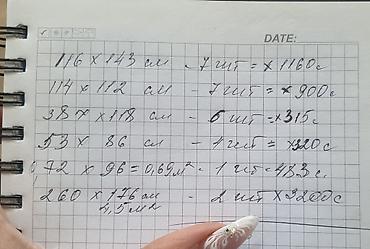 DATE:
116 x 143 см - 7 шт = x 1160с
114 x 112 см - 7 шт = x 900с
38 x 118 см - 6 шт = x315с
53 x 86 см - 4 шт = x320с
72 x 96 = 0,69м² - 1 шт = 483с.
260 x 176 см - 2 шт x 3200с
4,5 м²